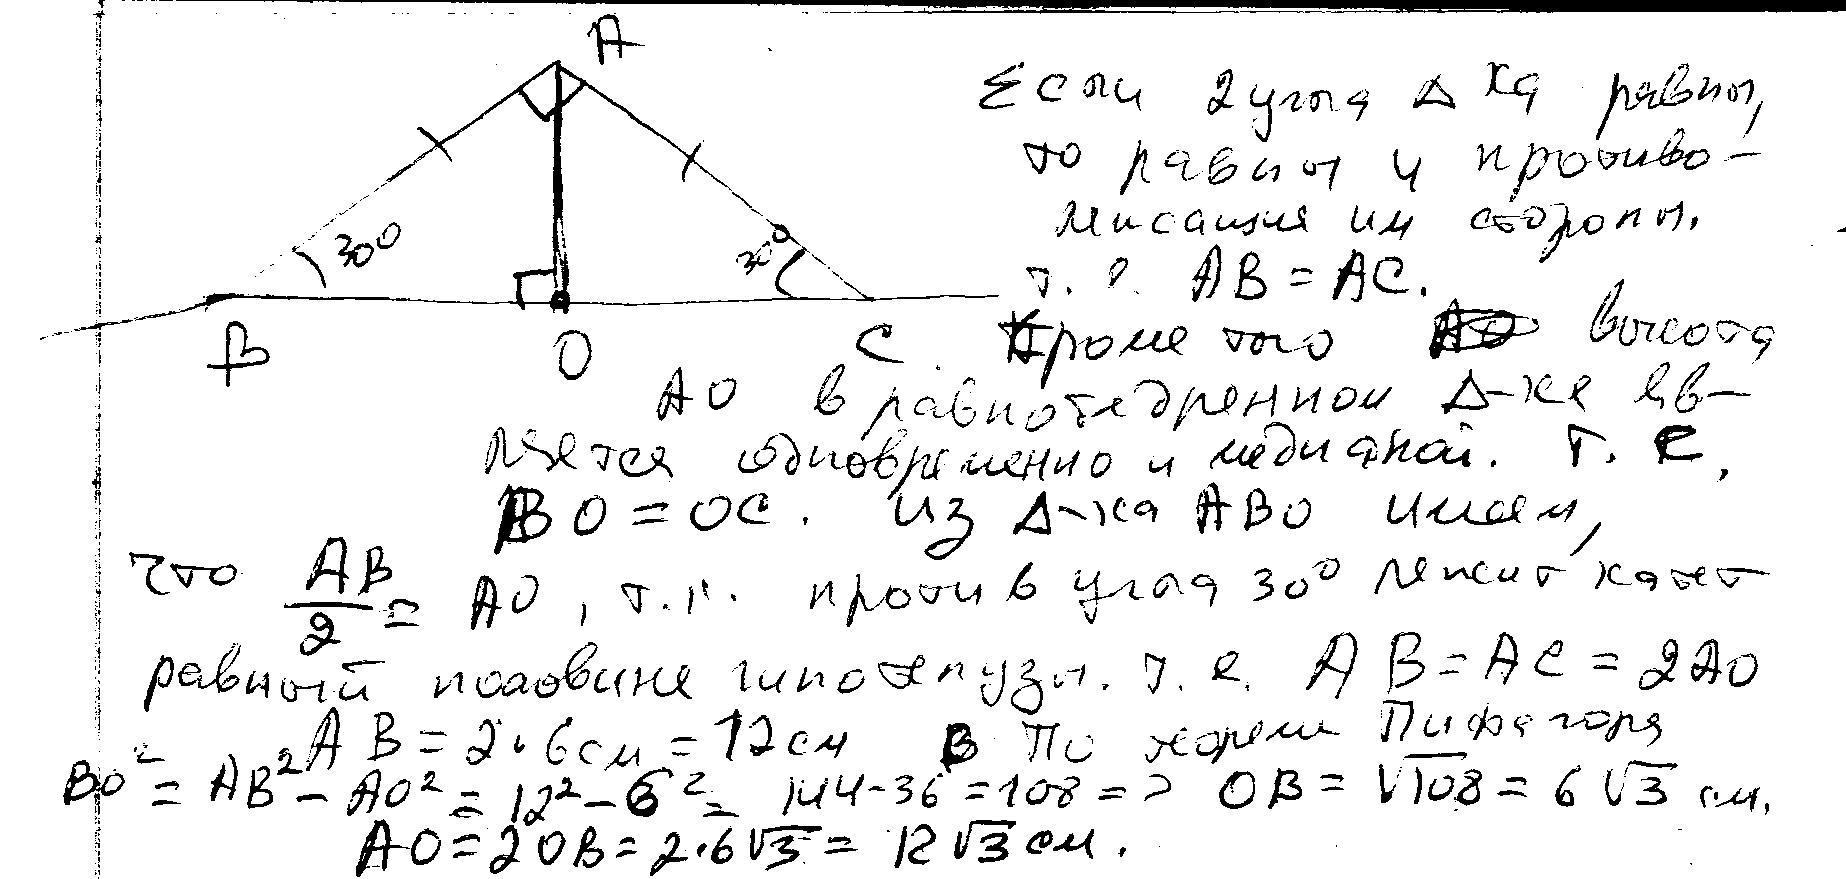 A
30°
30°
B
O
C
Если 2 угла Δ ка равны,
то равны и противо-
лежащие им стороны.
т. е. AB = AC.
Кроме того высота
AO в равнобедренном Δ-ке яв-
ляется одновременно и медианой. Т. Е.
BO = OC. Из Δ-ка ABO имеем,
что AB/2 = AO, т.к. против угла 30° лежит катет
равный половине гипотенузы. т. е. AB = AC = 2AO
AB = 2·6см = 12см В По теореме Пифагора
BO² = AB² - AO² = 12² - 6² = 144-36 = 108 => OB = √108 = 6√3 см.
AO = 2OB = 2·6√3 = 12√3 см.